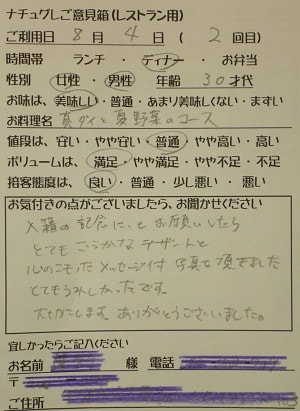 ナチュグレご意見箱(レストラン用)
ご利用日 8 月 4 日 ( 2 回目)
時間帯 ランチ ・ ディナー ・ お弁当
性別 女性 ・ 男性 年齢 30才代
お味は、美味しい・普通・あまり美味しくない・まずい
お料理名 真ダイと夏野菜のコース
値段は、安い・やや安い・普通・やや高い・高い
ボリュームは、満足・やや満足・やや不足・不足
接客態度は、良い・普通・少し悪い・悪い
お気付きの点がございましたら、お聞かせください
入籍の記念にとお願いしたら
とてもごうかなデザートと
心のこもったメッセージ付写真を頂きました
とてもうれしかったです。
大切にします。ありがとうございました。
宜しかったらご記入ください
お名前 様 電話
〒
ご住所